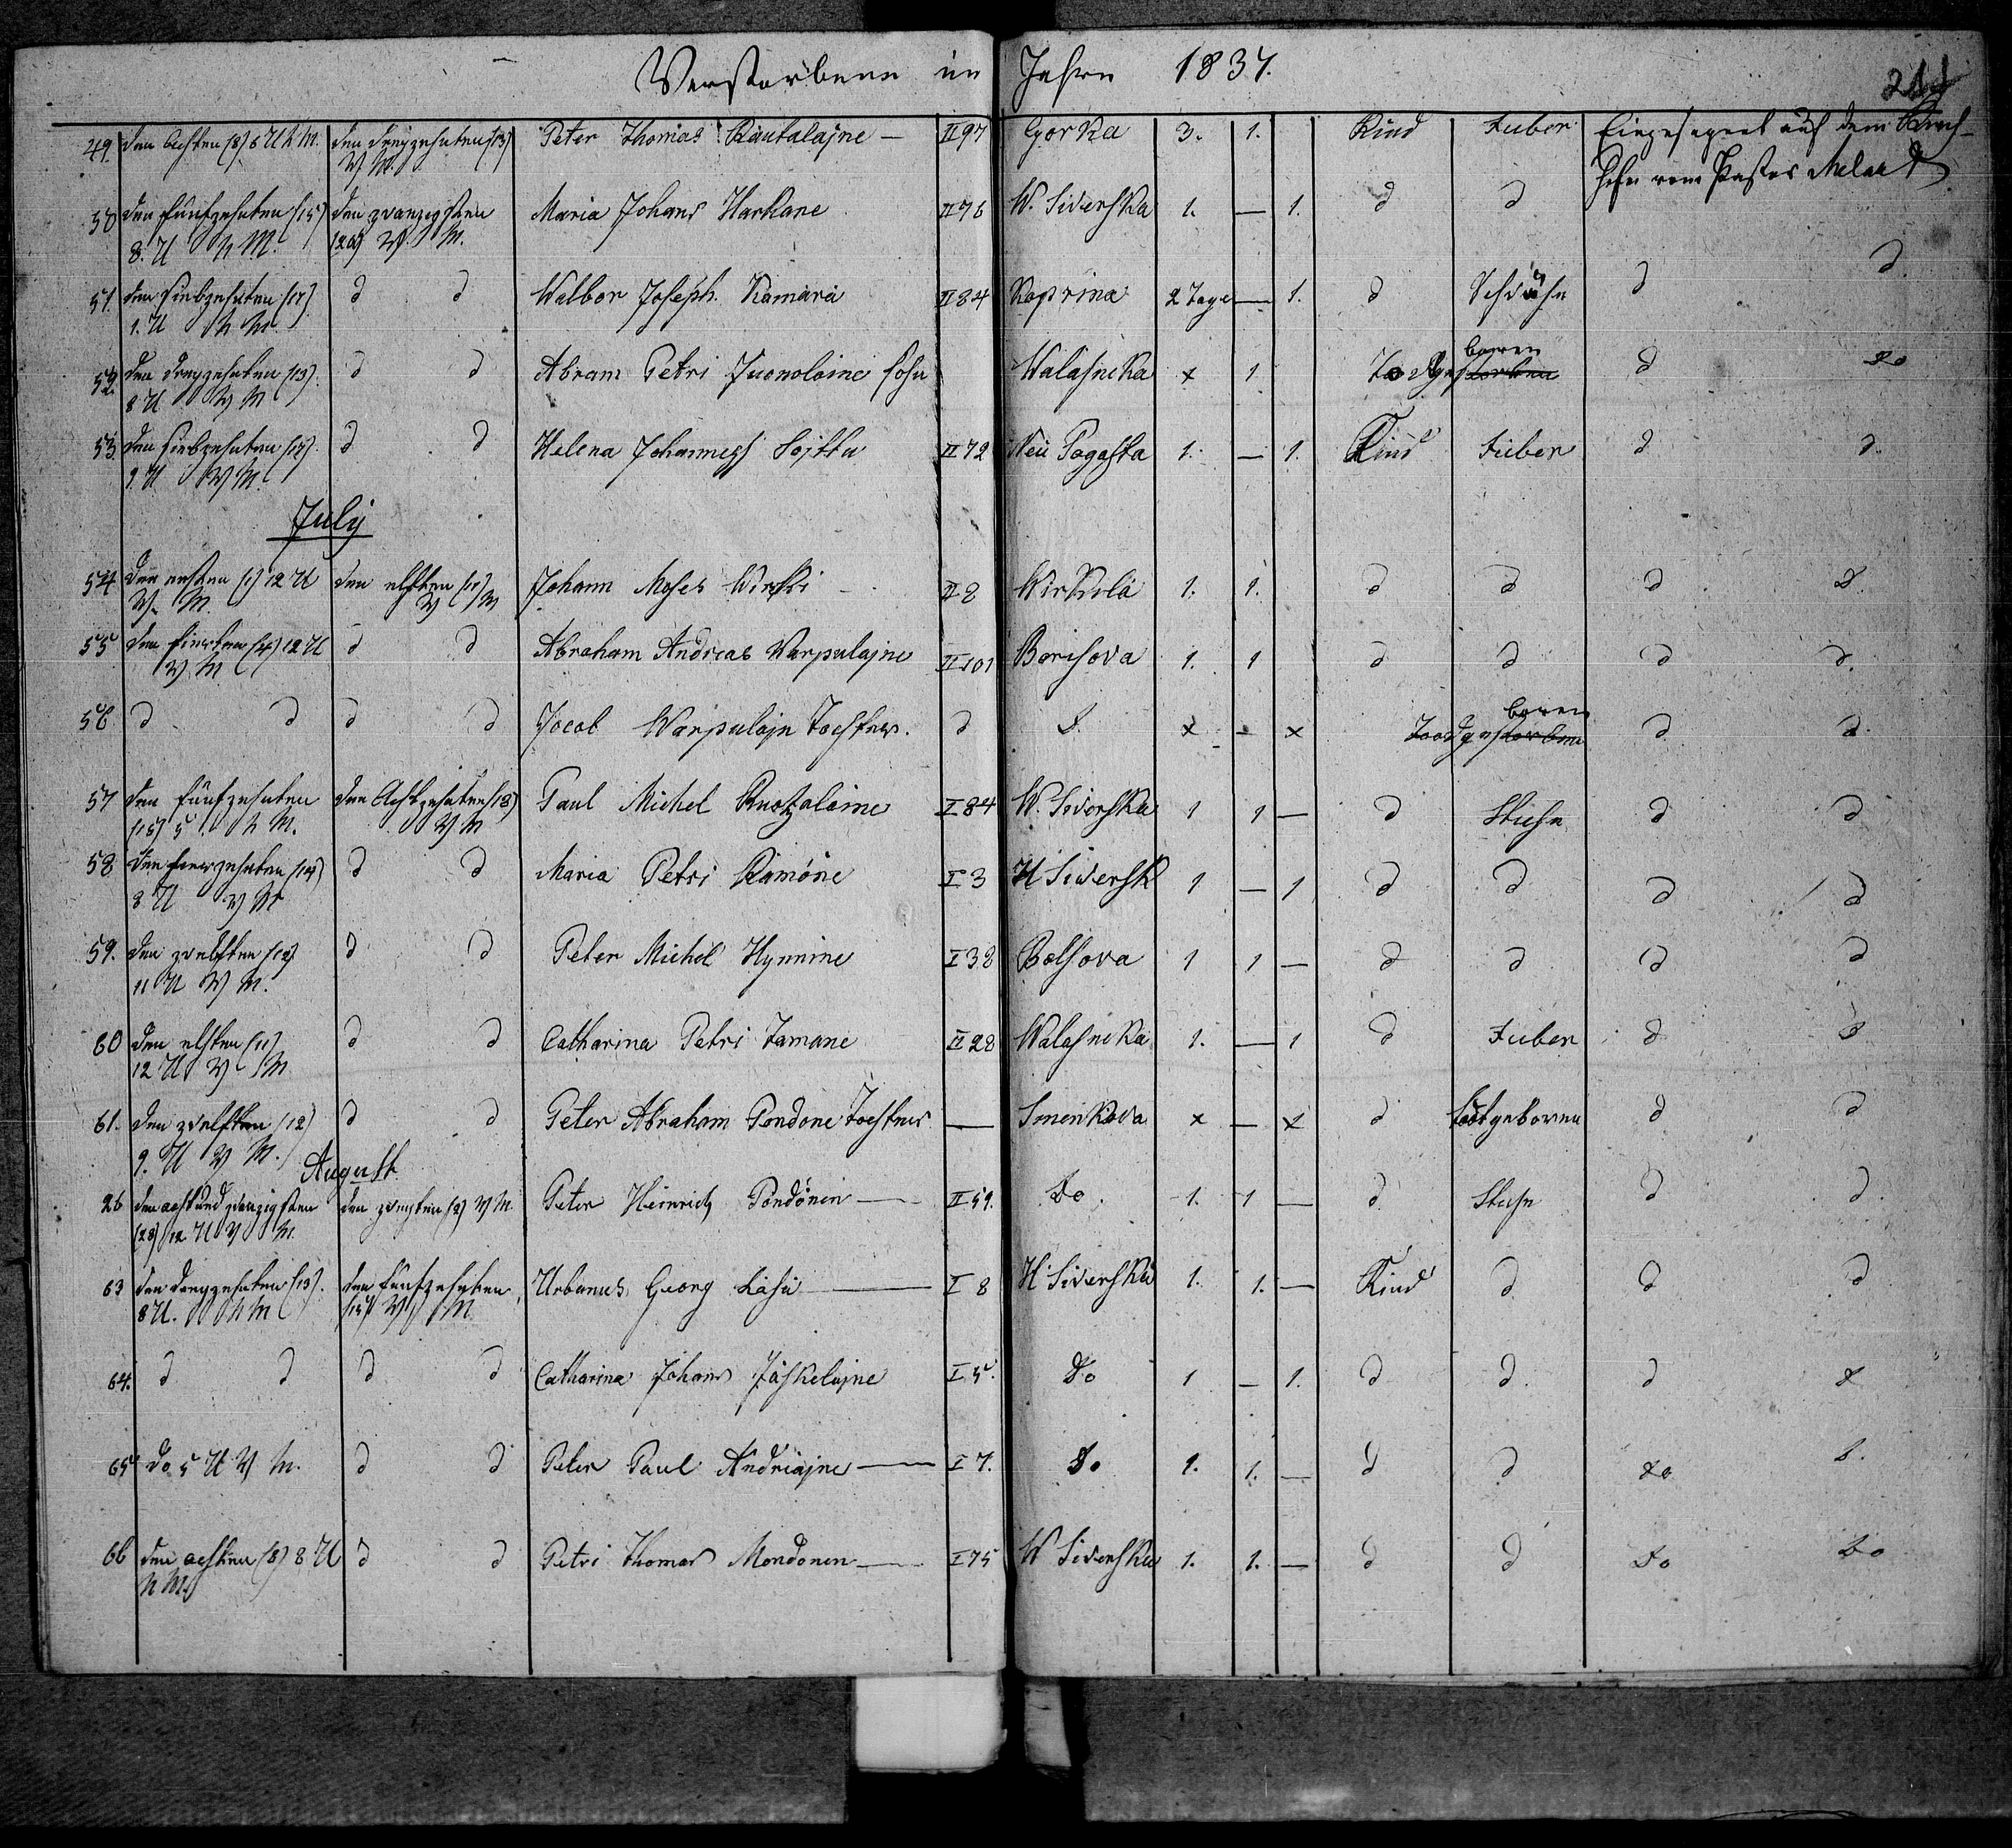 Verstorbene im Jahre 1837.
211
49. den Achten (8) 8 U N. M. den dreyzehnten (13) Peter Thomas Rautalajne — II 97 Gorka 3. 1. Kind Fieber Eingesegnet auf dem Kirch-
V. M. hofe vom Pastor
50 den fünfzehnten (15) den zwanzigsten Maria Johans Harkane II 76 W. Siverska 1. — 1. d d
8. U N M. (20) V. M. d d.
51. den siebzehnten (17) d d Walbor Joseph. Kämärä II 84 Koprina 2 Tage — 1. d Schwäche d
1. U N M.
boren
52. den dreyzehnten (13). d d Abram Petri Juonolaine Sohn Walasnika x 1 Todtgestorben d do
8 U V M
53. den siebzehnten (17). d d Helena Johanness Sojttu II 72 Neu Pogosta 1. — 1. Kind Fieber d d.
9. U V M.
July
54 den ersten (1) 12 U den elften (11) Johann Moses Wirki II 8 Wirkilä 1. 1. d d d d.
V. M. V M
55 den fierten (4) 12 U d d Abraham Andreas Warpulajne II 101 Borisova 1. 1 d d d d.
V M
boren
56 d d d d Jacob Warpulajn Tochter. d d. x - x Toodgestorben d d.
57 den fünfzehnten den Achtzehnten (18) Paul Michel Ruotzalaine I 84 W. Siverska 1 1 — d d d
(15) 5 N M. V M
58 den fierzehnten (14) d d Maria Petri Rämöne I 3 H Siversk 1 — 1 d d d d
8 U V M
59. den zwelften (12) d d Peter Michel Hynnine I 38 Bolsova 1 1 — d d d d
11 U V M.
60 den elften (11) d d Catharina Petri Tamane II 28 Walasnika 1. — 1 d Fieber d d
12 U V M
61. den zwelften (12) d d Peter Abraham Pondone Tochter — Smenkova x — x d todtgeboren d d
9. U V M.
August
26 den acht und zwanzigsten den zweyten (2) V M. Peter Heinrich Pöndönen — II 59. Do. 1. 1 — d. d d.
(28) 12 U V M.
63 den dreyzehnten (13). den fünfzehnten Urbanus Georg Läsä — I 8 H Siverska 1. 1. — Kind d d d
8 U. N M (15) V M.
64. d d d d Catharina Johans Jäskeläjne I 5. Do 1 — 1. d d. d d
65 do 5 U V M. d d Peter Paul Andriajne — I 7. Do 1. 1. — d d do d.
66 den achten (8) 8 U d d Petri Thomas Mondonen — I 75 W Siverska 1. 1. — d d do do
N M.